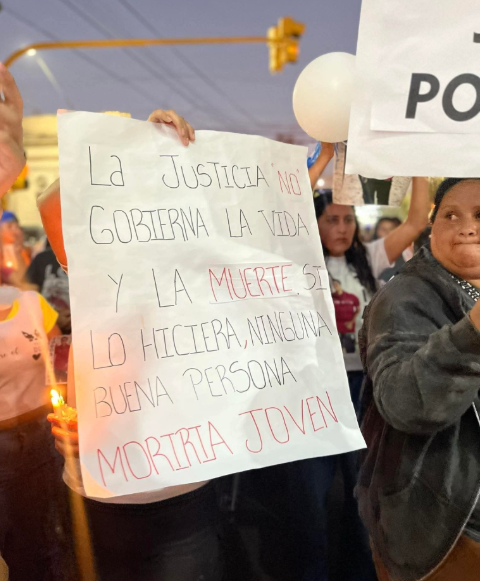 La JUSTICIA 'NO'
GOBIERNA LA VIDA
Y LA MUERTE, SI
LO HICIERA, NINGUNA
BUENA PERSONA
MORIRIA JOVEN